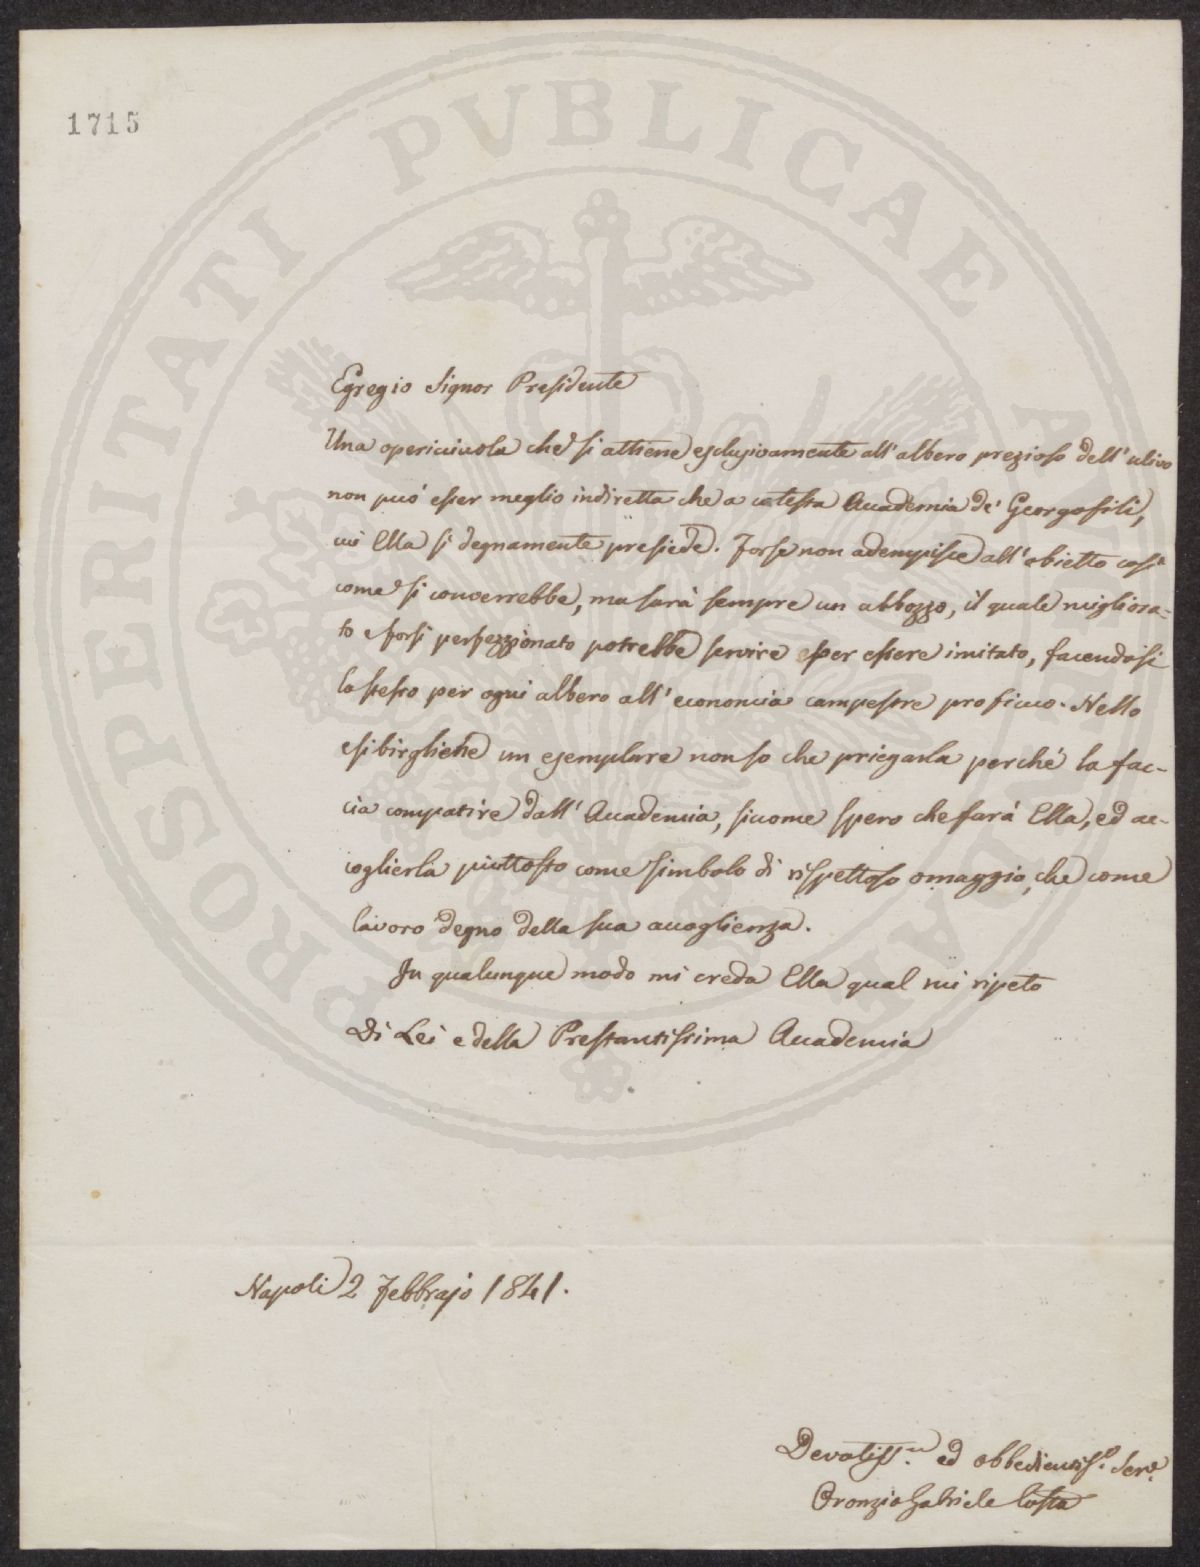 1715
PROSPERITATI PVBLICAE AVGENDAE
Egregio Signor Presidente
Una opericciuola che si attiene esclusivamente all'albero prezioso dell'ulivo
non può esser meglio indiretta che a cotesta Accademia de' Georgofili,
cui Ella sì degnamente presiede. Forse non adempisce all'obietto così
come si converrebbe, ma sarà sempre un abbozzo, il quale migliora-
to e forsi perfezzionato potrebbe servire per essere imitato, facendosi
lo stesso per ogni albero all'economia campestre proficuo. Nello
esibirgliene un esemplare non so che priegarla perché la fac-
cia compatire dall'Accademia, siccome spero che farà Ella, ed ac-
coglierla piuttosto come simbolo di rispettoso omaggio, che come
lavoro degno della sua accoglienza.
In qualunque modo mi creda Ella qual mi ripeto
Di Lei e della Prestantissima Accademia
Napoli 2 Febbrajo 1841.
Devotiss.mo ed obbedientiss.o Serv.e
Oronzio Gabriele Costa